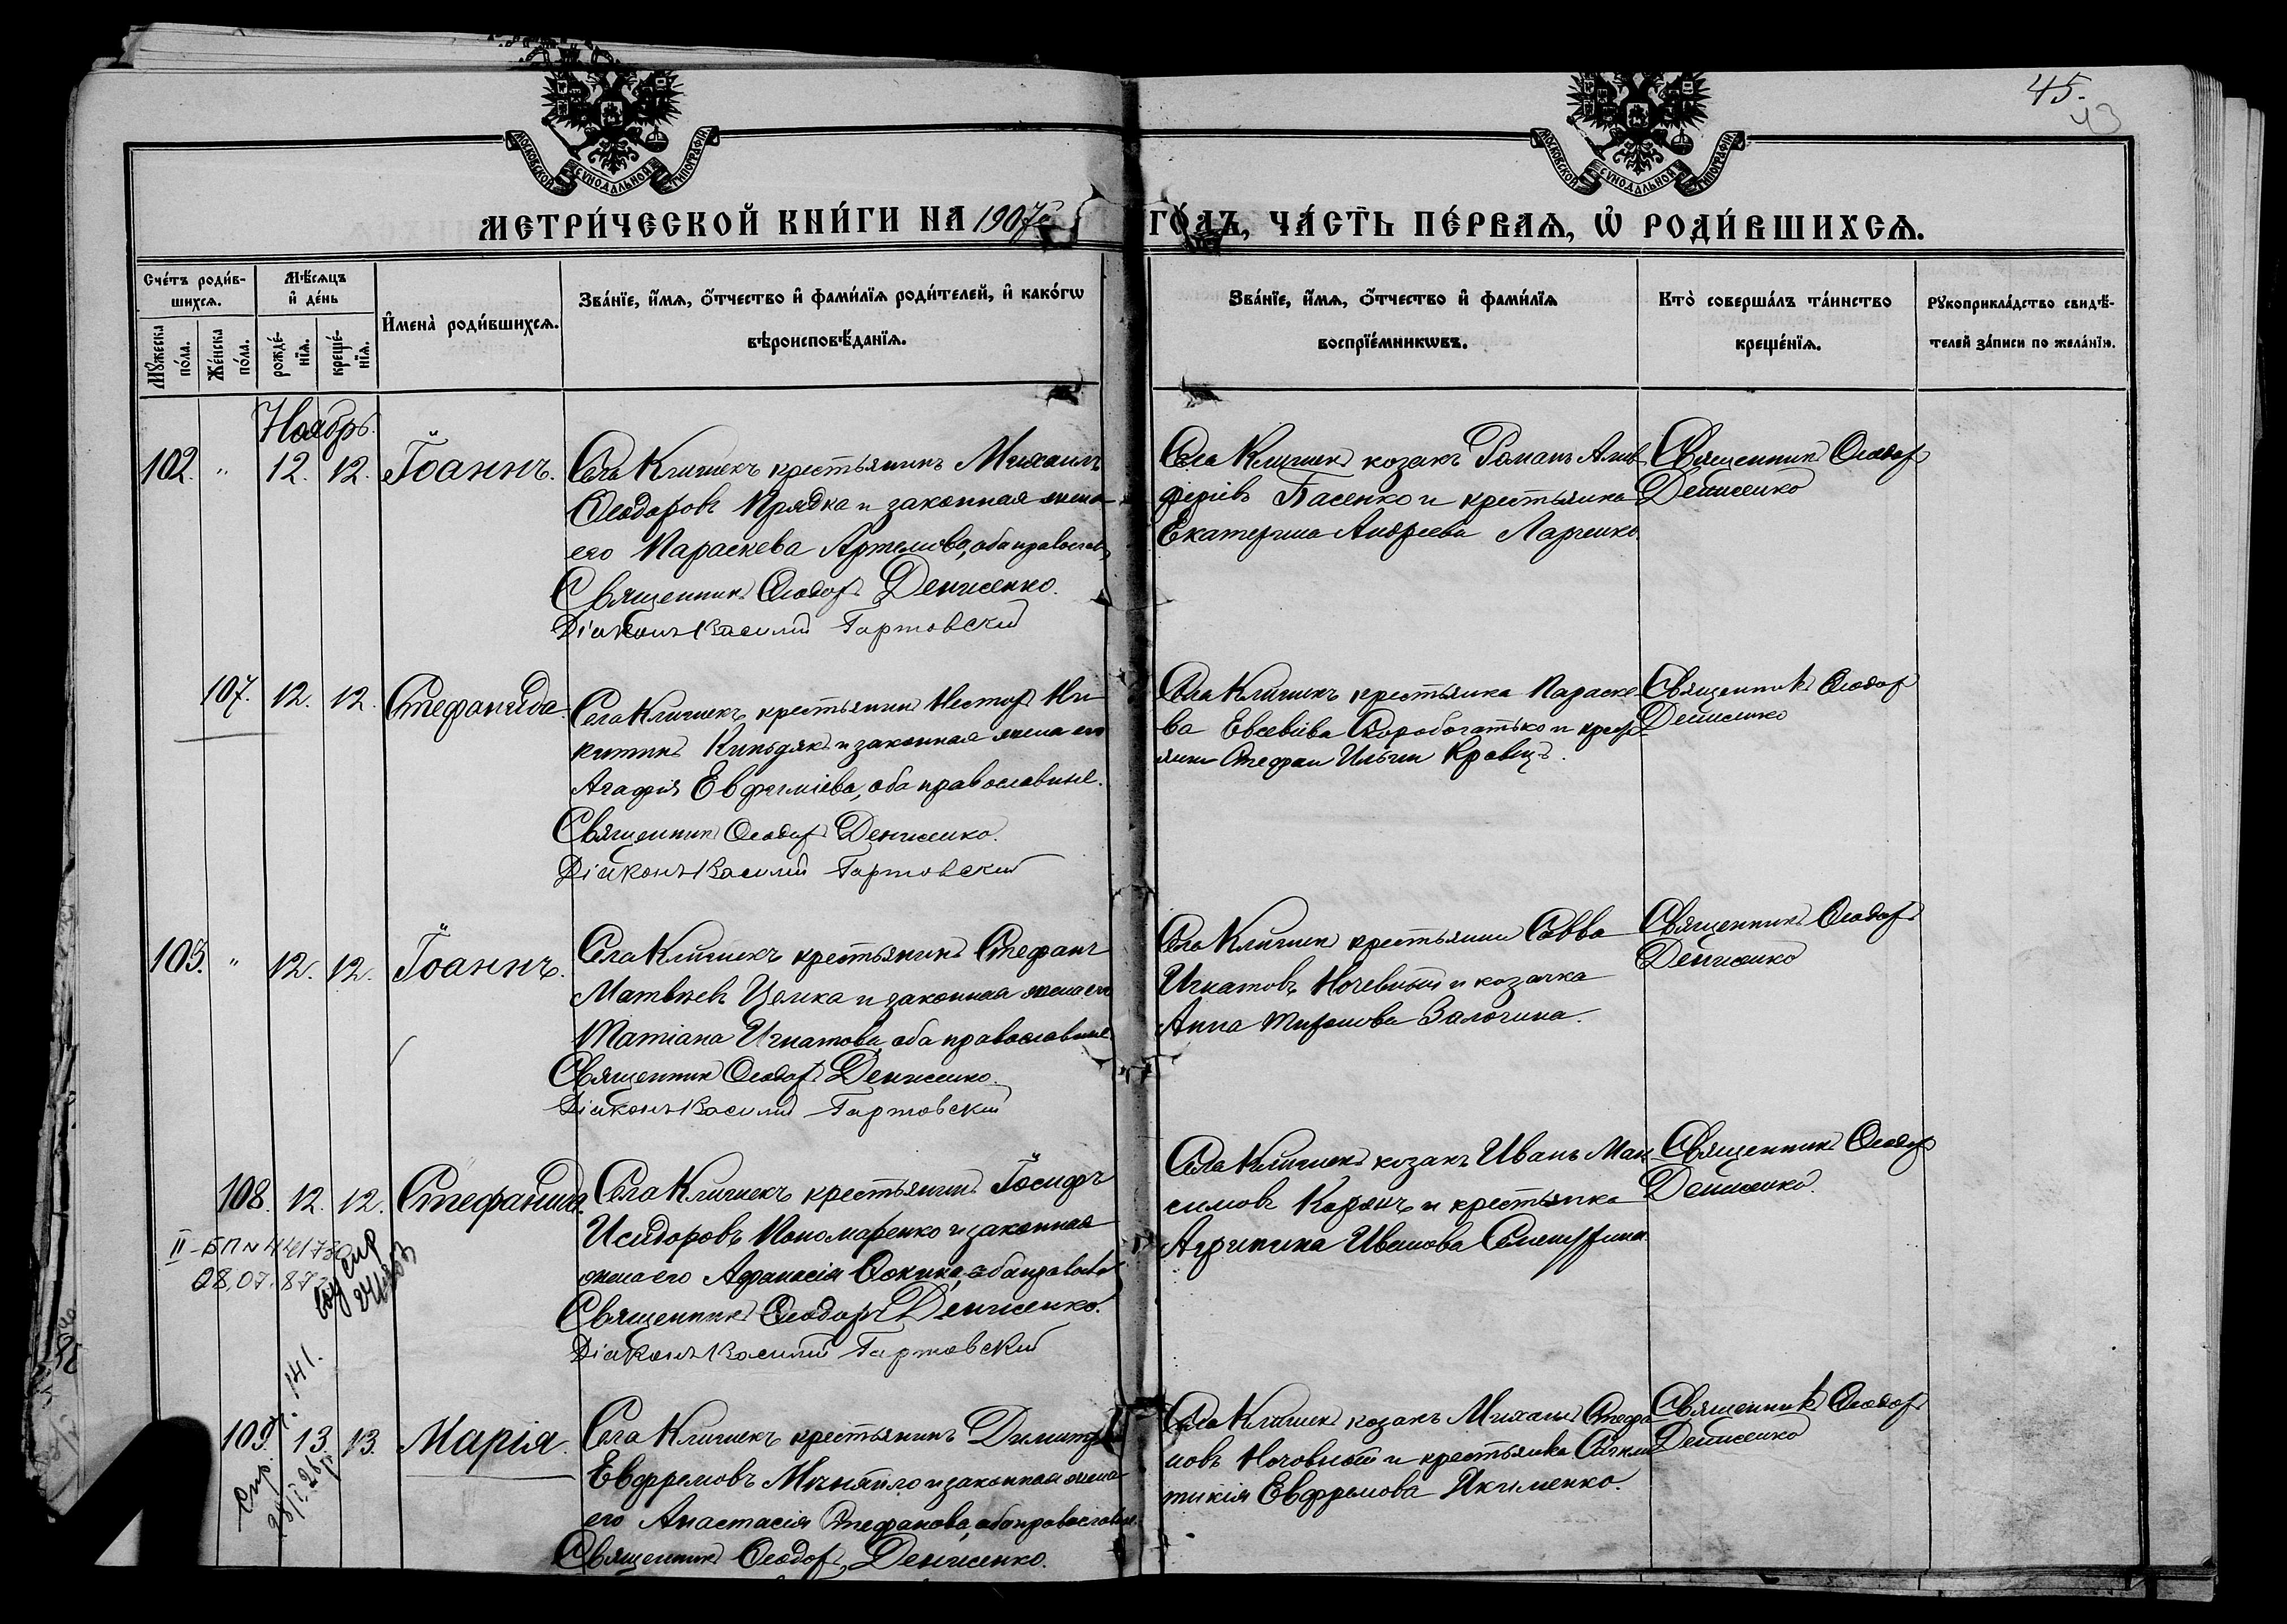 45.
43
МОСКОВСКОЙ СУНОДАЛЬНОЙ ТИПОГРАФІИ
МОСКОВСКОЙ СУНОДАЛЬНОЙ ТИПОГРАФІИ
МЕТРИ́ЧЕСКОЙ КНИ́ГИ НА 1907й ГО́ДЪ, ЧА́СТЬ ПЕ́РВАѦ, Ѡ҆ РОДИ́ВШИХСѦ.
Сче́тъ роди́в-
шихсѧ.
Мꙋ́жеска по́ла.
Же́нска по́ла.
Мѣ́сѧцъ
и҆ де́нь
рожде́-нїѧ.
креще́-нїѧ.
И҆мена̀ роди́вшихсѧ.
Зва́нїе, и҆́мѧ, о҆́тчество и҆ фами́лїѧ роди́телей, и҆ како́гѡ
вѣроисповѣ́данїѧ.
Зва́нїе, и҆́мѧ, о҆́тчество и҆ фами́лїѧ
воспрїе́мникѡвъ.
Кто̀ соверша́лъ та́инство
креще́нїѧ.
Рꙋкоприкла́дство свидѣ́-
телей за́писи по жела́нїю.
Ноябрь.
102. " 12. 12. Іоаннъ.
Села Клишекъ крестьянинъ Михаилъ
Ѳеодоровъ Прядка и законная жена
его Параскева Артемова, оба православ.
Священникъ Ѳеодоръ Денисенко.
Діаконъ Василій Гартовскій
Села Клишекъ козакъ Романъ
Пасенко и крестьянка
Екатерина Андреева
Священникъ Ѳеодоръ
Денисенко
107. 12. 12. Стефанида
Села Клишекъ крестьянинъ Несторъ Ни-
китинъ Киндякъ и законная жена его
Агафія Евфиміева, оба православные.
Священникъ Ѳеодоръ Денисенко.
Діаконъ Василій Гартовскій
Села Клишекъ крестьянка Параске-
ва Евсевіева Скоробогатько и крест
янинъ Стефан Ильин Кравецъ.
Священникъ Ѳеодоръ
Денисенко
103. " 12. 12. Іоаннъ.
Села Клишекъ крестьянинъ Стефанъ
Матвѣевъ Цѣпка и законная жена его
Татіана Игнатова, оба православные
Священникъ Ѳеодоръ Денисенко.
Діаконъ Василій Гартовскій
Села Клишекъ крестьянинъ Савва
Игнатовъ Ночевный и козачка
Анна Миронова
Священникъ Ѳеодоръ
Денисенко
108. 12. 12. Стефанида.
Села Клишекъ крестьянинъ Іосифъ
Исидоровъ Пономаренко и законная
жена его Афанасія Фокина, оба правосл
Священникъ Ѳеодоръ Денисенко.
Діаконъ Василій Гартовскій
Села Клишекъ козакъ Иванъ Мак-
симовъ Корякъ и крестьянка
Агрипина Иванова
Священникъ Ѳеодоръ
Денисенко.
II-БП №
28.07.87
141.
109. 13. 13. Марія.
Села Клишекъ крестьянинъ Димитрій
Евфремовъ Миняйло и законная жена
его Анастасія Стефанова, оба православные.
Священникъ Ѳеодоръ Денисенко.
Села Клишекъ козакъ Михаилъ Стефа-
новъ Ночовный и крестьянка Сигкли
тикія Евфремова Якименко.
Священникъ Ѳеодоръ
Денисенко